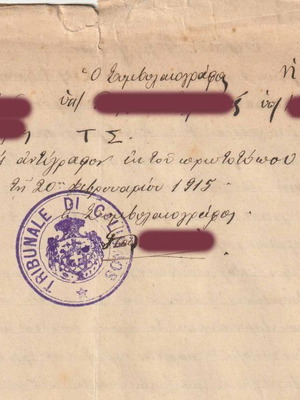 Ο Συμβολαιογράφος ἡ
ὑπ/ ὑπ/
Τ Σ.
ἀντίγραφον ἐκ τοῦ πρωτοτύπου
τῇ 20 Φεβρουαρίου 1915
Ὁ Συμβολαιογράφος
TRIBUNALE DI